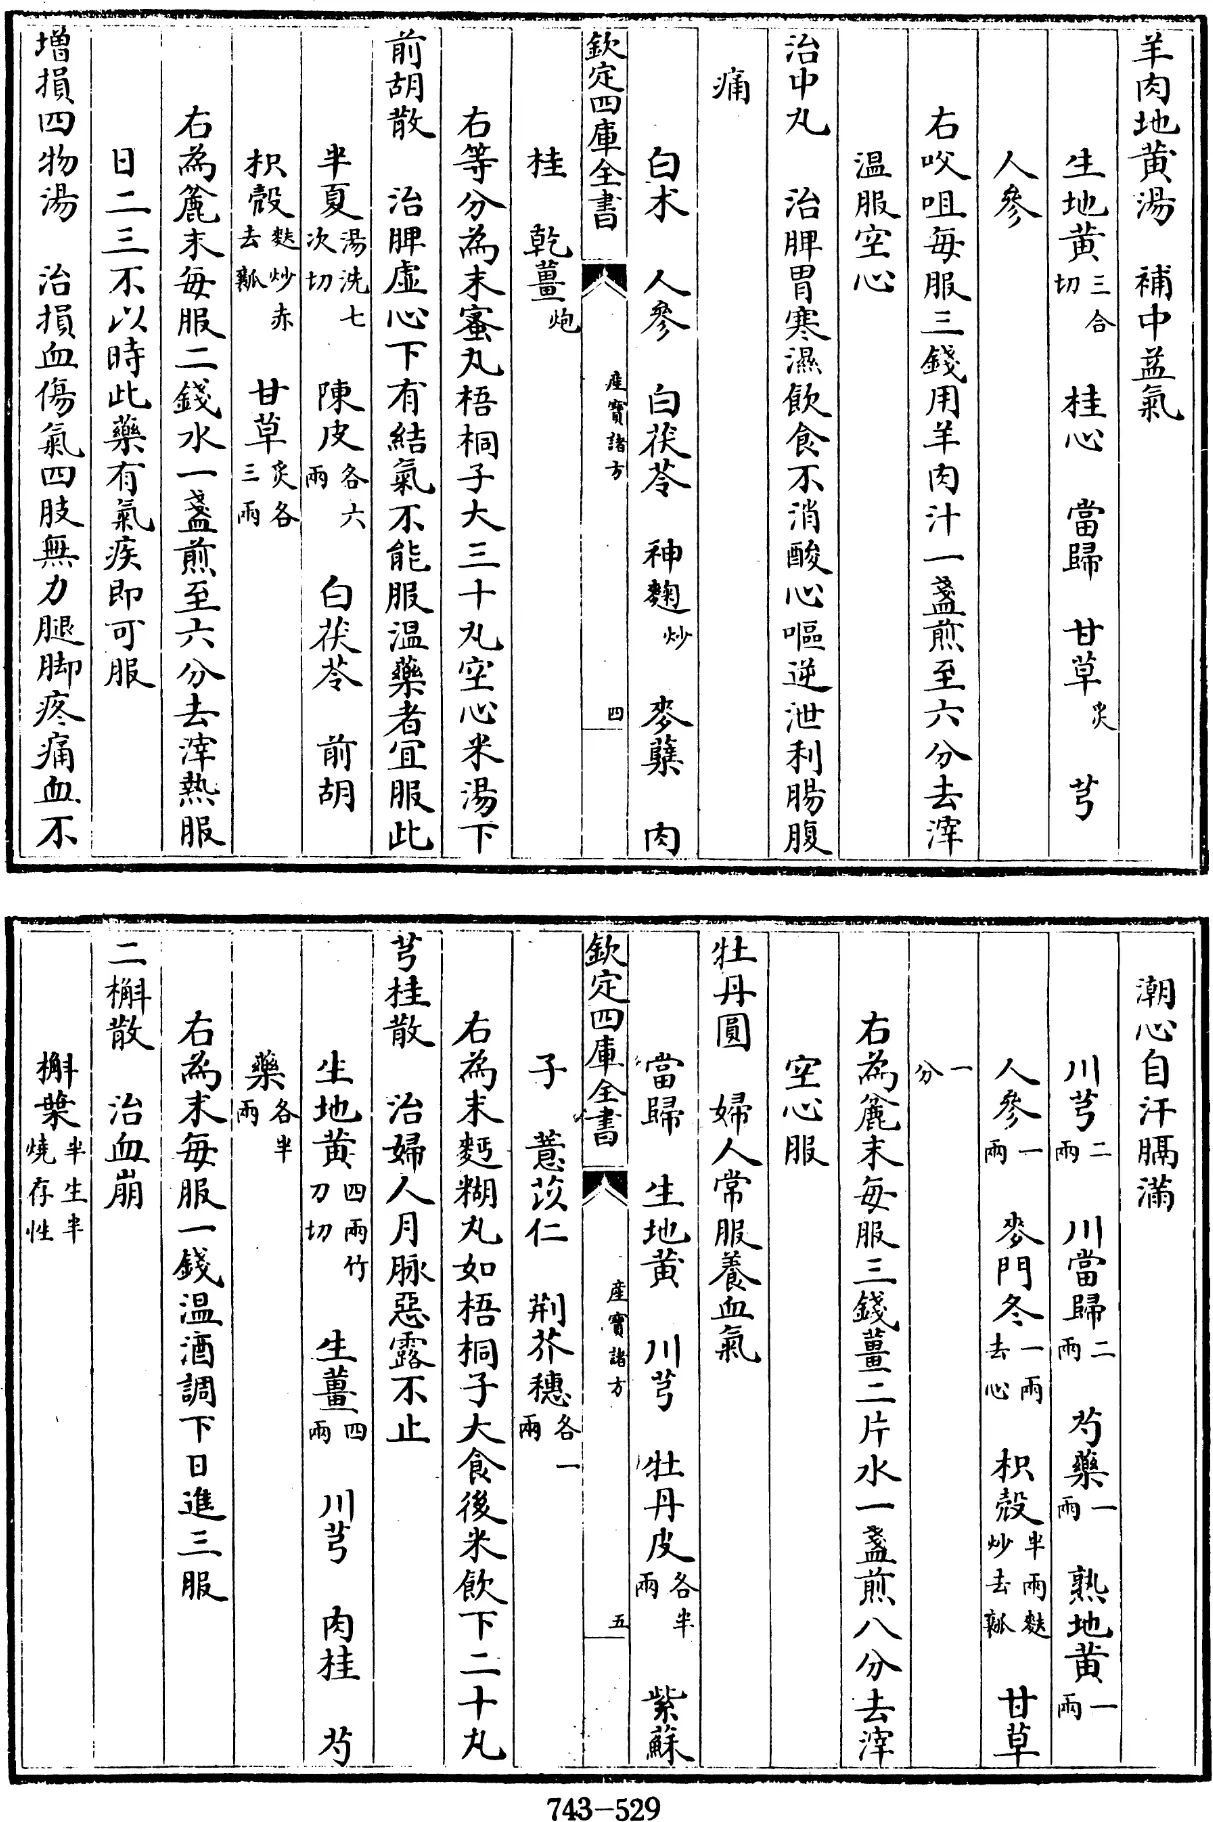 羊肉地黄湯　補中益氣
生地黄三合切　桂心　當歸　甘草炙　芎
人參
右㕮咀每服三錢用羊肉汁一盞煎至六分去滓
温服空心
治中丸　治脾胃寒濕飲食不消酸心嘔逆泄利腸腹
痛
白术　人參　白茯苓　神麴炒　麥蘖　肉
欽定四庫全書　產寶諸方　四
桂　乾薑炮
右等分為末蜜丸梧桐子大三十丸空心米湯下
前胡散　治脾虛心下有結氣不能服温藥者宜服此
半夏湯洗七次切　陳皮各六兩　白茯苓　前胡
枳殼麩炒赤去瓤　甘草炙各三兩
右為麄末每服二錢水一盞煎至六分去滓熱服
日二三不以時此藥有氣疾即可服
增損四物湯　治損血傷氣四肢無力腿脚疼痛血不
潮心自汗膈滿
川芎二兩　川當歸二兩　芍藥一兩　熟地黄一兩
人參一兩　麥門冬一兩去心　枳殼半兩麩炒去瓤　甘草
一分
右為麄末每服三錢薑二片水一盞煎八分去滓
空心服
牡丹圓　婦人常服養血氣
當歸　生地黄　川芎　牡丹皮各半兩　紫蘇
欽定四庫全書　產寶諸方　五
子　薏苡仁　荆芥穗各一兩
右為末麪糊丸如梧桐子大食後米飲下二十丸
芎桂散　治婦人月脉惡露不止
生地黄四兩竹刀切　生薑四兩　川芎　肉桂　芍
藥各半兩
右為末每服一錢温酒調下日進三服
二槲散　治血崩
槲葉半生半燒存性
743-529